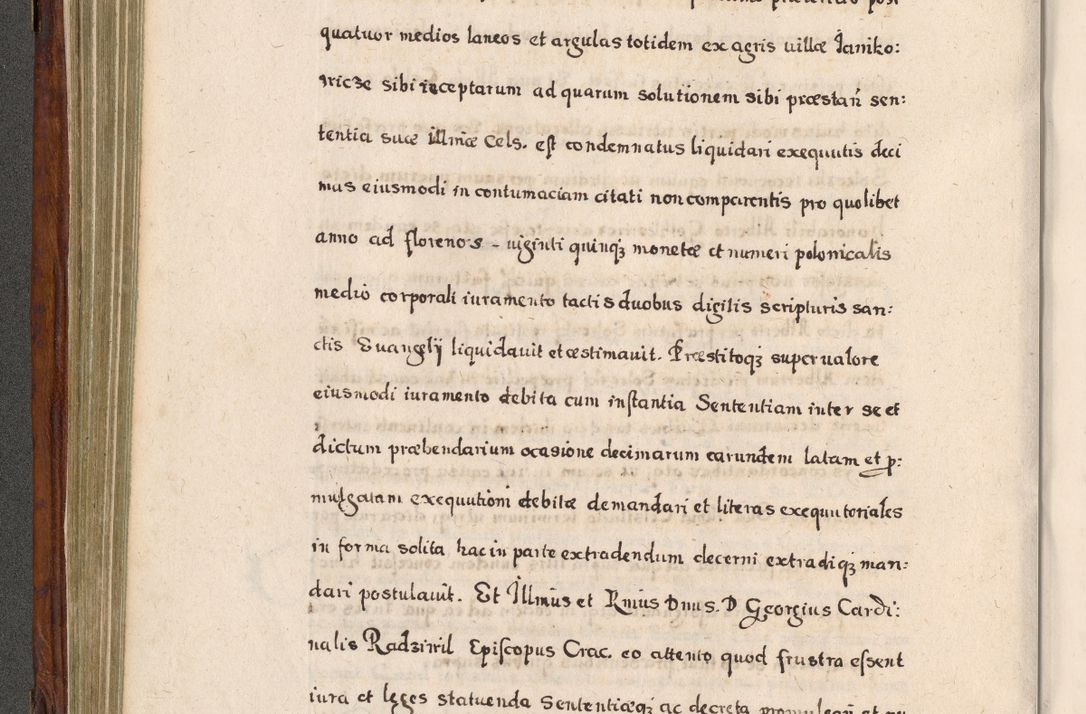 quatuor medios laneos et argulas totidem ex agris uillæ Janiko:
vicze sibi receptarum ad quarum solutionem sibi præstañ sen:
tentia suæ Illmæ Cels. est condemnatus liquidari exequutis deci
mas eiusmodi in contumaciam citati non comparentis pro quolibet
anno ad florenos - uiginti quinqꝫ monetæ et numeri polonicalis
medio corporali iuramento tactis duobus digitis scripturis san:
ctis Euangelÿ liquidauit et æstimauit. Præstitoqꝫ super ualore
eiusmodi iuramento debita cum instantia Sententiam inter se et
dictum præbendarium ocasione decimarum earundem latam et p:
mulgatam exequutioni debitæ demandari et literas exequutoriales
in forma solita hac in parte extradendum decerni extradiqꝫ man:
dari postulauit. Et Illmus et Rmus Dnus. D Georgius Cardi:
nalis Radziwil Episcopus Crac. eo attento quod frustra essent
iura et leges statuenda Sententiæqꝫ ac decreta